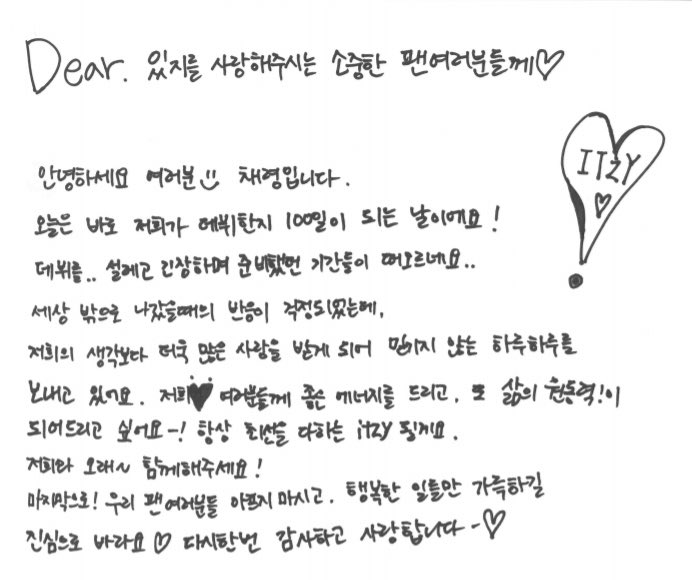 Dear. 있지를 사랑해주시는 소중한 팬여러분들께♡
ITZY
♡
안녕하세요 여러분 채영입니다.
오늘은 바로 저희가 데뷔한지 100일이 되는 날이에요!
데뷔를.. 설레고 긴장하며 준비했던 기간들이 떠오르네요..
세상 밖으로 나갔을때의 반응이 걱정되었는데,
저희의 생각보다 더욱 많은 사랑을 받게 되어 믿기지 않는 하루하루를
보내고 있어요. 저희♥여러분들께 좋은 에너지를 드리고, 또 삶의 원동력!이
되어드리고 싶어요~! 항상 최선을 다하는 itzy 될게요.
저희와 오래~ 함께해주세요!
마지막으로! 우리 팬여러분들 아프지 마시고, 행복한 일들만 가득하길
진심으로 바라요♡ 다시한번 감사하고 사랑합니다~♡